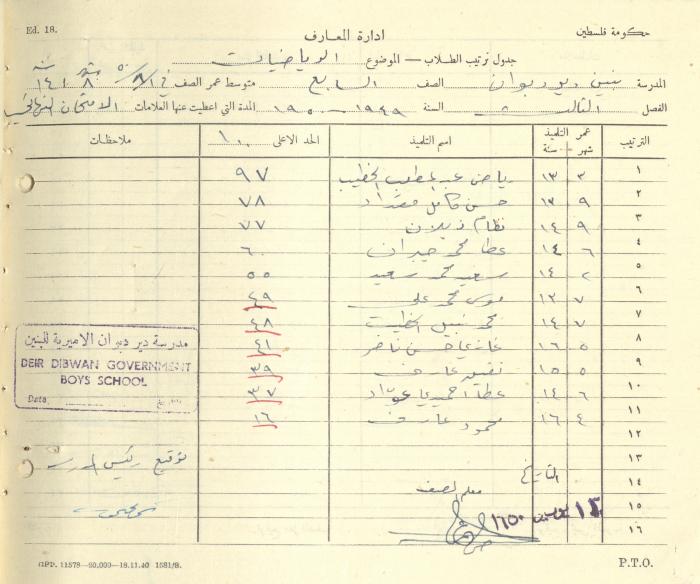 Ed. 18.
ادارة المعارف
حكومة فلسطين
جدول ترتيب الطلاب — الموضوع الرياضيات
المدرسة بنين دير ديوان الصف السابع متوسط عمر الصف ٨ شهر ١٤ سنه
الفصل الثالث السنة ١٩٤٩ - ١٩٥٠ المدة التي اعطيت عنها العلامات الامتحان النهائي
الترتيب عمر التلميذ شهر سنة اسم التلميذ الحد الاعلى ١٠٠ ملاحظات
١ ٣ ١٣ رياض عبد المطلب الخطيب ٩٧
٢ ٩ ١٣ حسن كامل مقداد ٧٨
٣ ٩ ١٤ نظام ذيلان ٧٧
٤ ٦ ١٤ عطا محمد جبران ٦٠
٥ ٢ ١٤ سعيد محمد سعيد ٥٥
٦ ٧ ١٣ موسى محمد علي ٤٩
٧ ٧ ١٤ محمد نبيل الخطيب ٤٨
٨ ٥ ١٦ غازي حسن ناصر ٤١
٩ ٥ ١٥ عارف ٣٩
١٠ ٦ ١٤ عطا احمد عواد ٣٧
١١ ٤ ١٦ محمود عارف ١٦
١٢
١٣
١٤
١٥
١٦
مدرسة دير دبوان الاميرية للبنين
DEIR DIBWAN GOVERNMENT
BOYS SCHOOL
Date
توقيع رئيس المدرسة
التاريخ
معلم الصف
GPP. 11578—60,000—18.11.40 1581/S.
P.T.O.